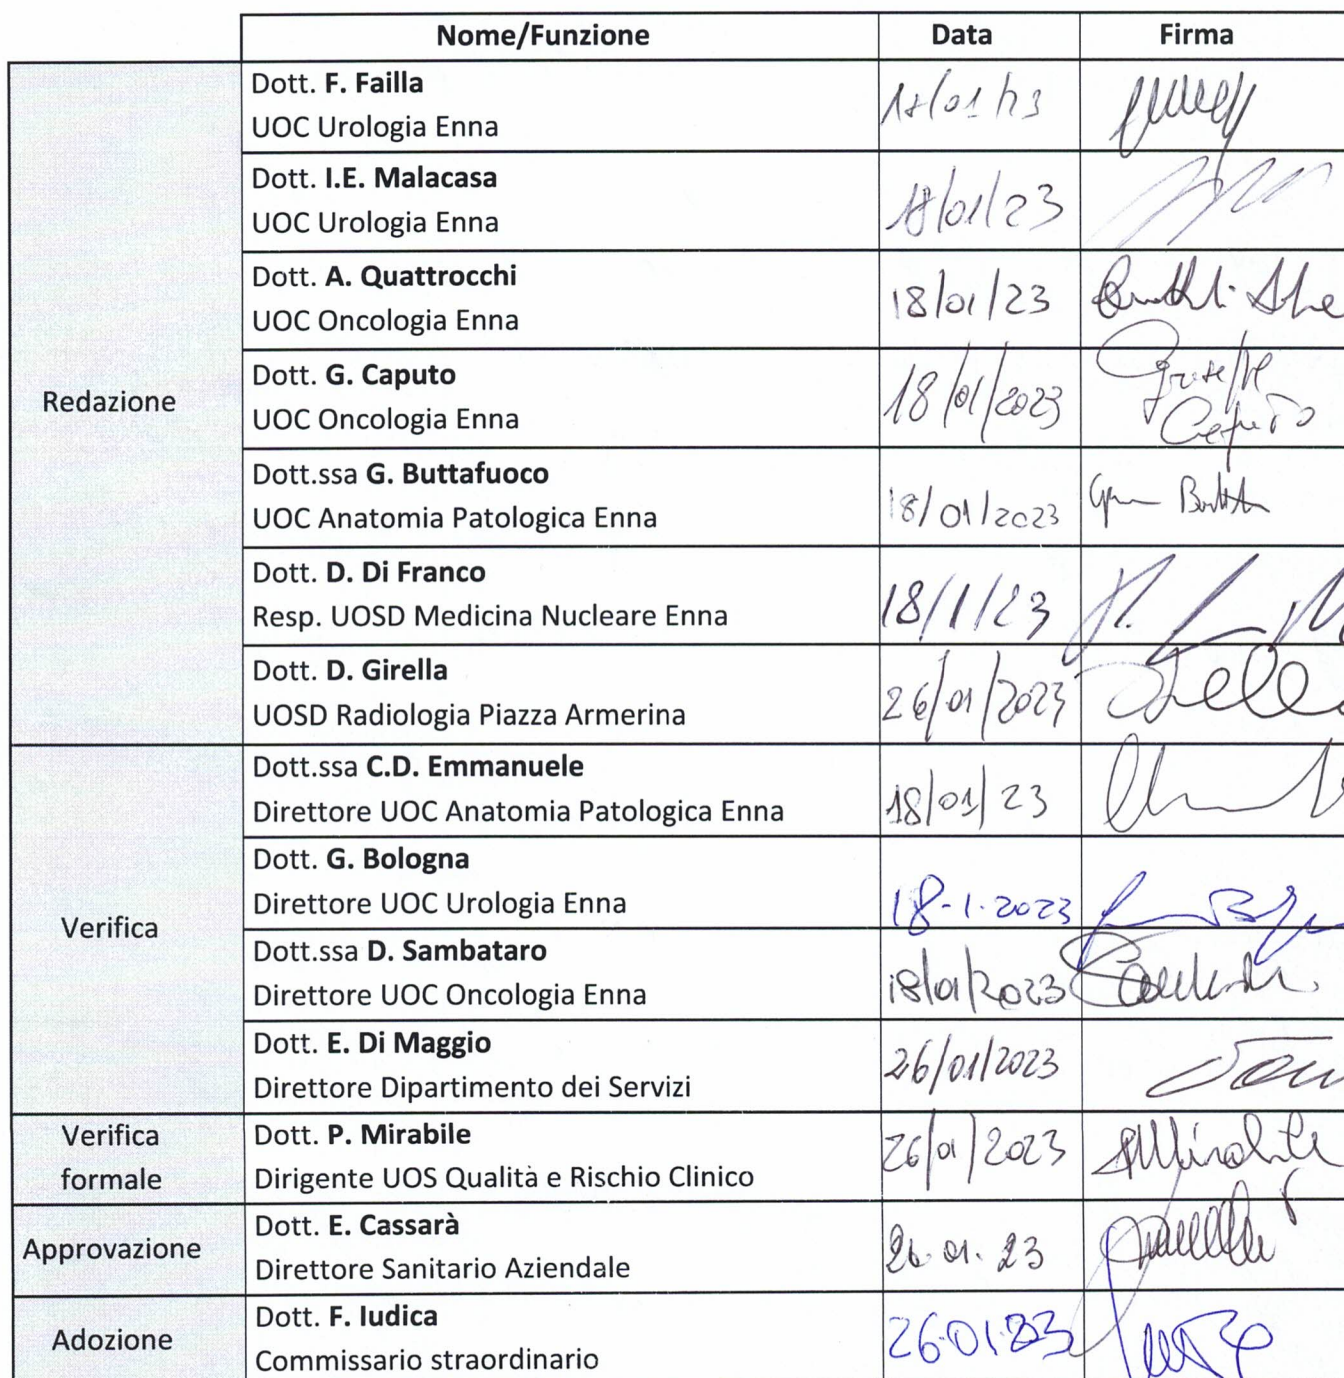 Nome/Funzione Data Firma
Redazione
Dott. F. Failla
UOC Urologia Enna
Dott. I.E. Malacasa
UOC Urologia Enna
18/01/23
Dott. A. Quattrocchi
UOC Oncologia Enna
18/01/23
Dott. G. Caputo
UOC Oncologia Enna
18/01/2023
Giuseppe
Caputo
Dott.ssa G. Buttafuoco
UOC Anatomia Patologica Enna
18/01/2023
Dott. D. Di Franco
Resp. UOSD Medicina Nucleare Enna
18/1/23
Dott. D. Girella
UOSD Radiologia Piazza Armerina
26/01/2023
Verifica
Dott.ssa C.D. Emmanuele
Direttore UOC Anatomia Patologica Enna
18/01/23
Dott. G. Bologna
Direttore UOC Urologia Enna
18-1-2023
Dott.ssa D. Sambataro
Direttore UOC Oncologia Enna
18/01/2023
Dott. E. Di Maggio
Direttore Dipartimento dei Servizi
26/01/2023
Verifica
formale
Dott. P. Mirabile
Dirigente UOS Qualità e Rischio Clinico
26/01/2023
Approvazione
Dott. E. Cassarà
Direttore Sanitario Aziendale
26.01.23
Adozione
Dott. F. Iudica
Commissario straordinario
26.01.23